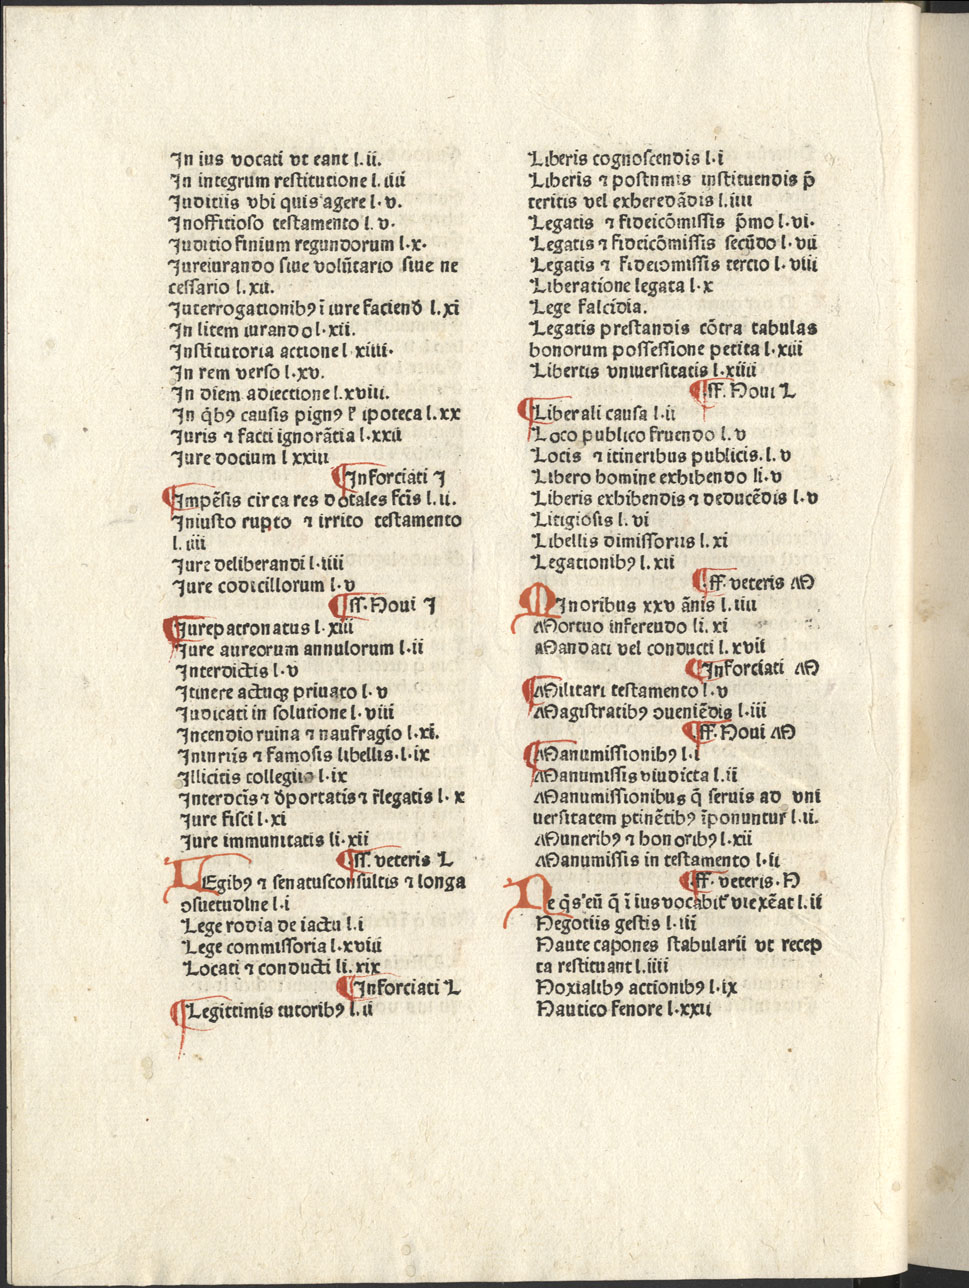 In ius vocati vt eant l.ii.
In integrum restitutione l.iiii
Juditiis vbi quis agere l.v.
Inoffitioso testamento l.v.
Juditio finium regundorum l.x.
Jureiurando siue volūtario siue ne
cessario l.xii.
Interrogationibꝰ ī iure faciend̄ l.xi
In litem iurando l.xii.
Institutoria actione l.xiiii.
In rem verso l.xv.
In diem adiectione l.xviii.
In q̄bꝰ causis pignꝰ ł ipoteca l.xx
Juris ⁊ facti ignorātia l.xxii
Jure docium l xxiii
¶Inforciati I
¶Impēsis circa res dotales fcīs l.ii.
Iniusto rupto ⁊ irrito testamento
l.iiii
Jure deliberandi l.iiii
Jure codicillorum l.v
¶ff.Noui I
¶Jurepatronatus l.xiii
Jure aureorum annulorum l.ii
Interdictis l.v
Itinere actuqꝫ priuato l.v
Judicati in solutione l.viii
Incendio ruina ⁊ naufragio l.xi.
Ininriis ⁊ famosis libellis.l.ix
Illicitis collegiis l.ix
Interdcīs ⁊ d̄portatis ⁊ r̄legatis l.x
Jure fisci l.xi
Jure immunitatis li.xii
¶ff.veteris L
LEgibꝰ ⁊ senatusconsultis ⁊ longa
ↄsuetudine l.i
Lege rodia de iactu l.i
Lege commissoria l.xviii
Locati ⁊ conducti li.xix
¶Inforciati L
¶Legittimis tutoribꝰ l.ii
Liberis cognoscendis l.i
Liberis ⁊ postnmis instituendis p̄
teritis vel exheredādis l.iiii
Legatis ⁊ fideicōmissis p̄mo l.vi.
Legatis ⁊ fideicōmissis secūdo l.vii
Legatis ⁊ fideiomissis tercio l.viii
Liberatione legata l.x
Lege falcidia.
Legatis prestandis cōtra tabulas
bonorum possessione petita l.xiii
Libertis vniuersitatis l.xiiii
¶ff.Noui L
¶Liberali causa l.ii
Loco publico fruendo l.v
Locis ⁊ itineribus publicis.l.v
Libero homine exhibendo li.v
Liberis exhibendis ⁊ deducēdis l.v
Litigiosis l.vi
Libellis dimissoriis l.xi
Legationibꝰ l.xii
¶.ff.veteris M
MInoribus xxv ānis l.iiii
Mortuo infereudo li.xi
Mandati vel conducti l.xvii
¶Inforciati M
¶Militari testamento l.v
Magistratibꝰ ↄueniēdis l.iii
¶ff.Noui M
¶Manumissionibꝰ l.i
Manumissis viudicta l.ii
Manumissionibus q̄ seruis ad vni
uersitatem ptinētibꝰ īponuntur l.ii.
Muneribꝰ ⁊ honoribꝰ l.xii
Manumissis in testamento l.ii
¶.ff.veteris.N
Ne q̄s eū q̄ ī ius vocabit᷑ vi exēat l.ii
Negotiis gestis l.iii
Naute capones stabularii vt recep
ta restituant l.iiii
Noxialibꝰ actionibꝰ l.ix
Nautico fenore l.xxii